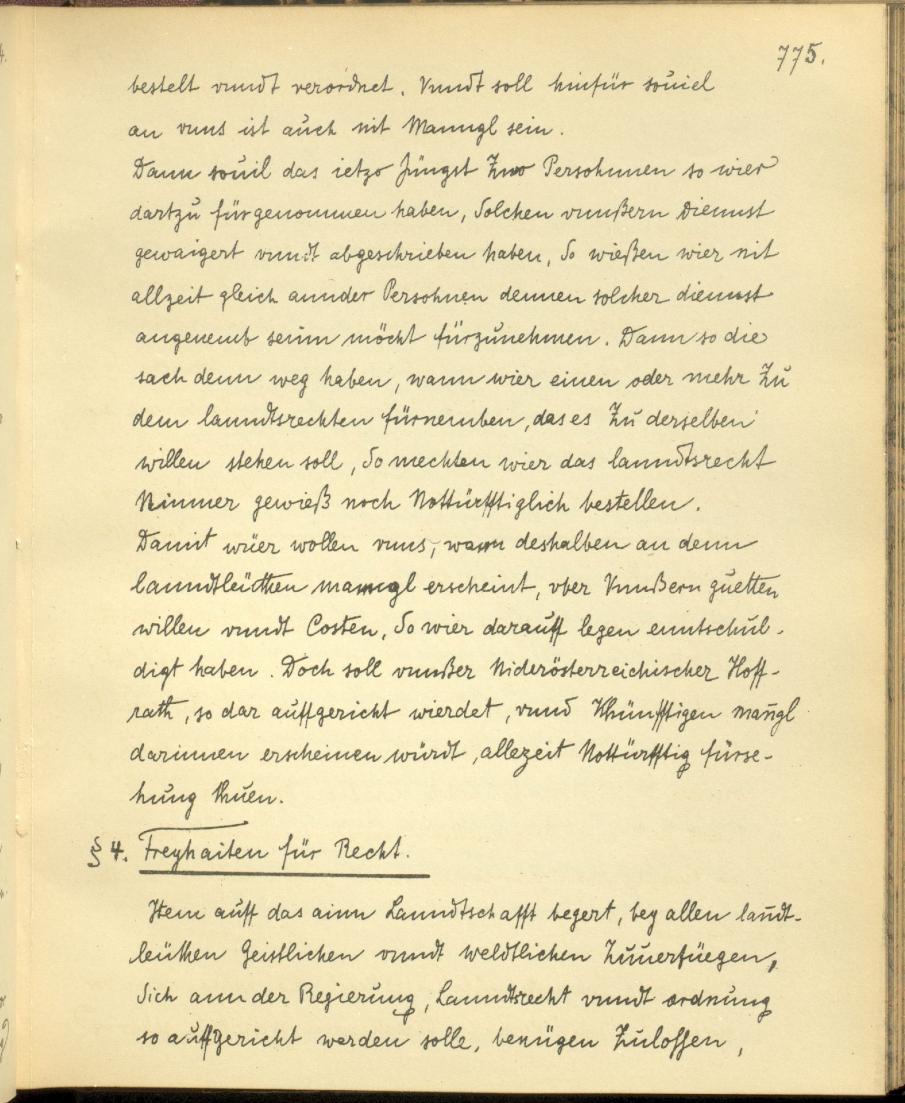 775.
bestelt vnndt verordnet. Vnndt soll hinfür souiel
an vnns ist auch nit Manngl sein.
Dann souil das ietzo Jüngst Zwo Persohnnen so wier
dartzu fürgenommen haben, Solchen vnnßern Diennst
gewaigert vnndt abgeschrieben haben, So wießen wier nit
allzeit gleich annder Persohnen dennen solcher diennst
angenemb seinn möcht fürzunehmen. Dann so die
sach denn weg haben, wann wier einen oder mehr Zu
dem lanndtsrechten fürnemben, das es Zu derselben
willen stehen soll, So mechten wier das lanndtsrecht
Nimmer gewieß noch Nottürfftiglich bestellen.
Damit wüer wollen vnns, wann deshalben an denn
lanndtleütten manngl erscheint, vber Vnnßern guetten
willen vnndt Costen, So wier darauff legen enntschul-
digt haben. Doch soll vnnßer Niderösterreichischer Hoff-
rath, so dar auffgericht wierdet, vnnd Khünfftigen mañgl
darinnen erscheinen würdt, allezeit Nottürfftig fürse-
hung thuen.
§ 4. Freyhaiten für Recht.
Item auff das ainn Lanndtschafft begert, bey allen lañdt-
leüthen Geistlichen vnndt weldtlichen Zuuerfüegen,
Sich ann der Regierung, Lanndtsrecht vnndt ordnung
so auffgericht werden solle, benügen Zulossen,